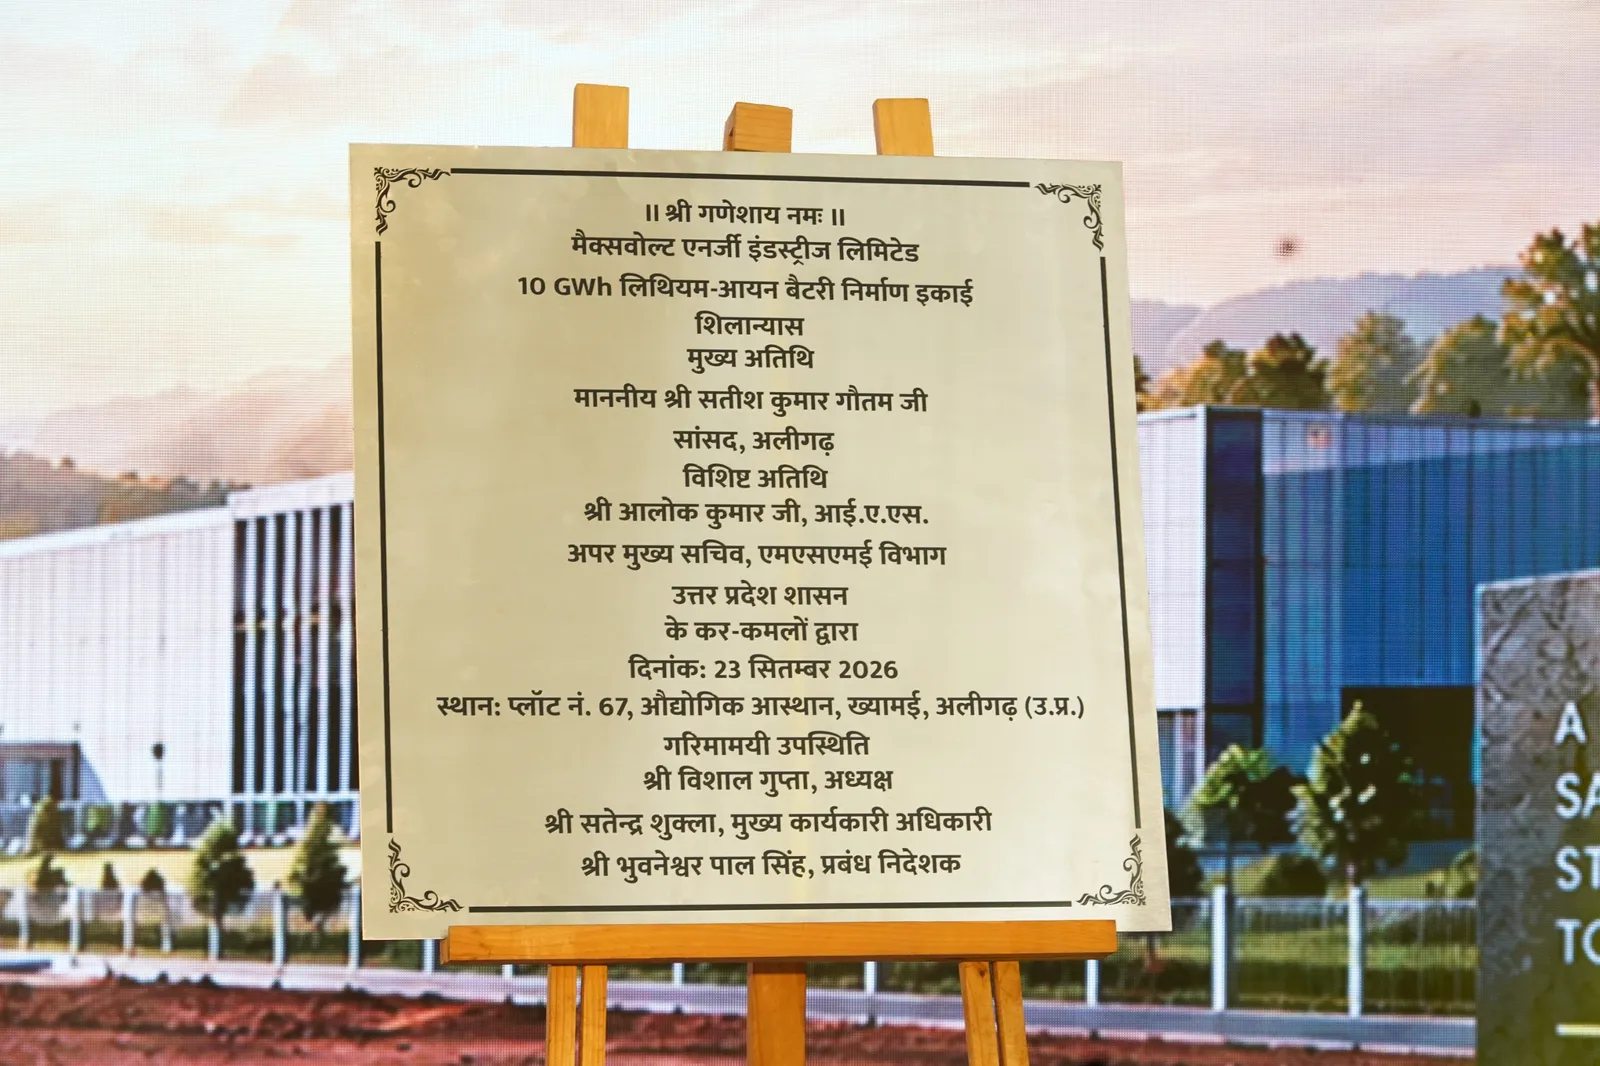 ॥ श्री गणेशाय नमः ॥
मैक्सवोल्ट एनर्जी इंडस्ट्रीज लिमिटेड
10 GWh लिथियम-आयन बैटरी निर्माण इकाई
शिलान्यास
मुख्य अतिथि
माननीय श्री सतीश कुमार गौतम जी
सांसद, अलीगढ़
विशिष्ट अतिथि
श्री आलोक कुमार जी, आई.ए.एस.
अपर मुख्य सचिव, एमएसएमई विभाग
उत्तर प्रदेश शासन
के कर-कमलों द्वारा
दिनांक: 23 सितम्बर 2026
स्थान: प्लॉट नं. 67, औद्योगिक आस्थान, ख्यामई, अलीगढ़ (उ.प्र.)
गरिमामयी उपस्थिति
श्री विशाल गुप्ता, अध्यक्ष
श्री सतेन्द्र शुक्ला, मुख्य कार्यकारी अधिकारी
श्री भुवनेश्वर पाल सिंह, प्रबंध निदेशक
A